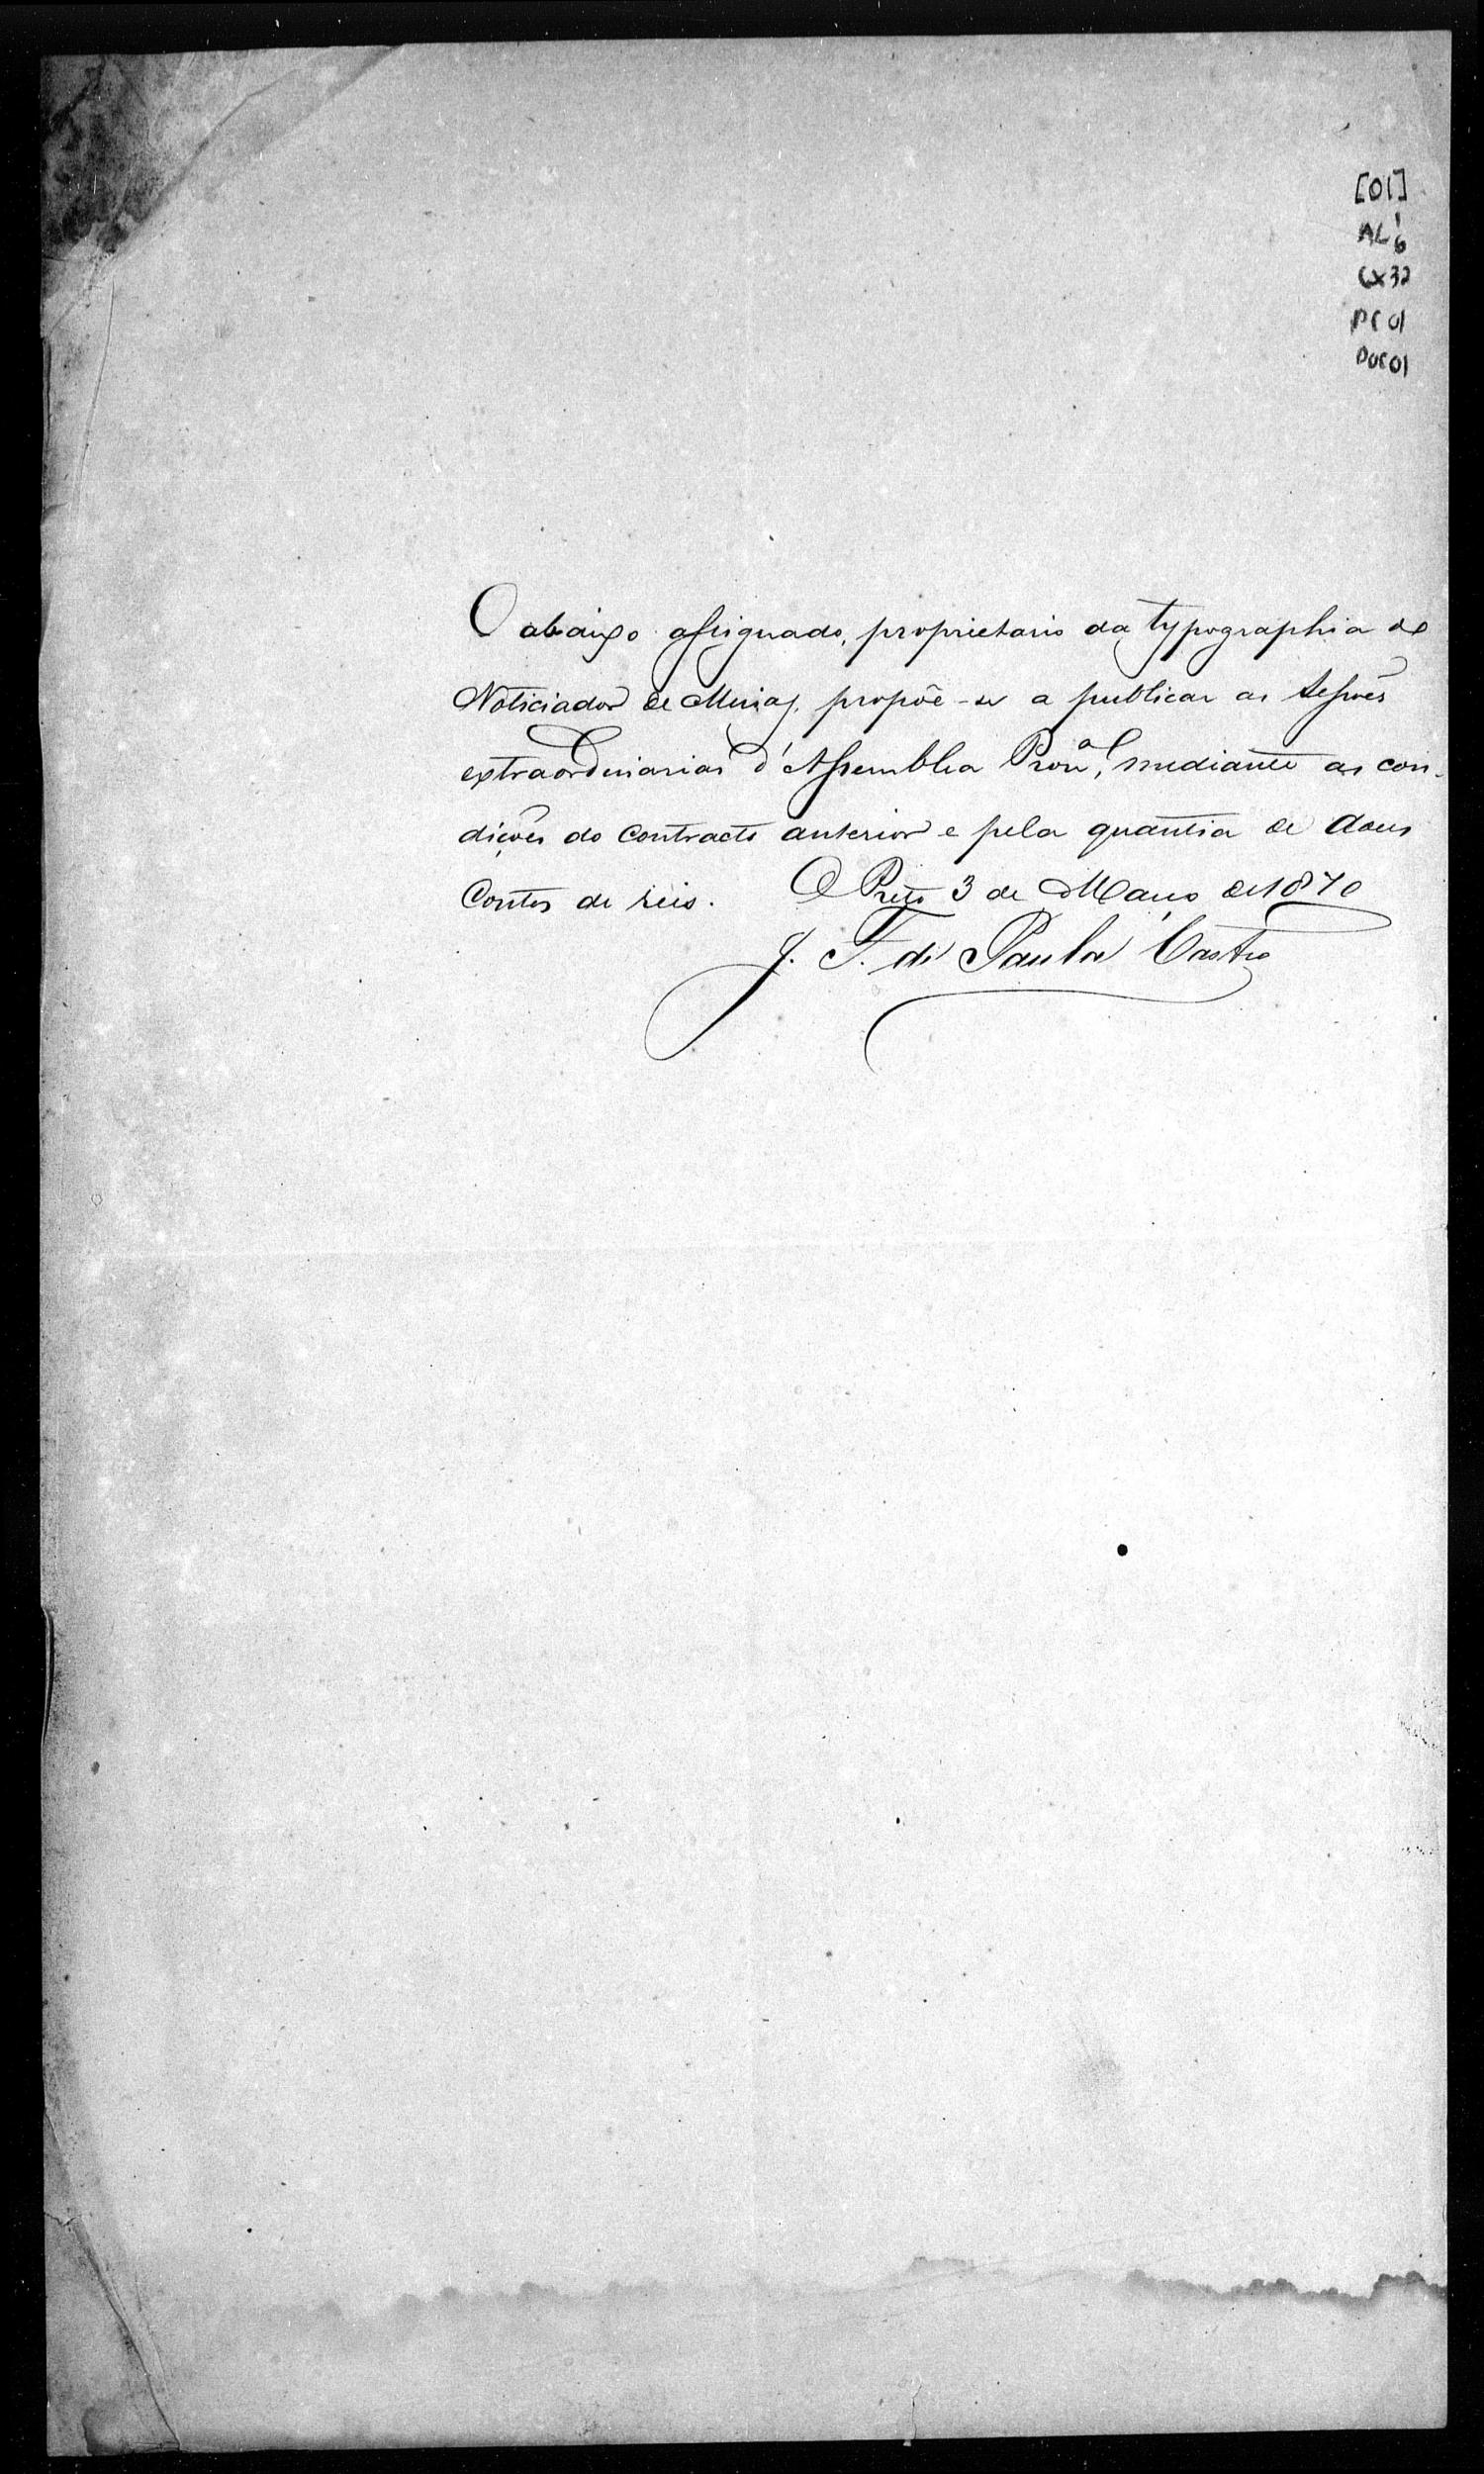 [01]
AL 1/6
Cx32
PC 01
DOC 01
O abaixo assignado, proprietario da typographia do
Noticiador de Minas, propõe-se a publicar as sessões
extraordinarias d'Assemblea Prov.al, mediante as con-
dições do contracto anterior e pela quantia de dous
Contos de reis. O Preto 3 de Março de 1870
J. F. de Paula Castro